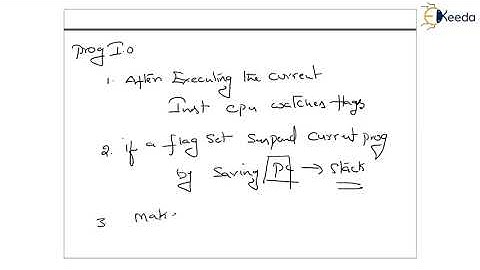 EKeeda
Prog I.O
1. After Executing the current
Inst cpu watches flags
2. if a flag set suspend current prog
by saving PC → stack
3 Mak